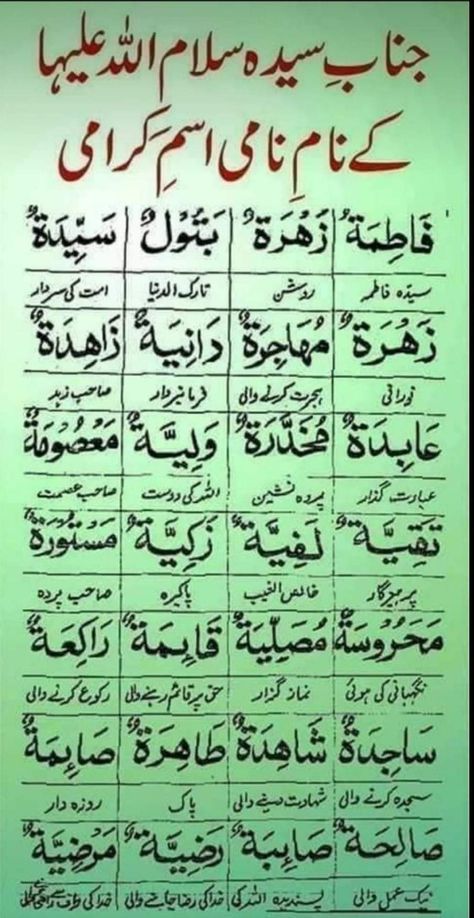 جنابِ سیدہ سلام اللہ علیہا
کے نامِ نامی اسمِ گرامی
فَاطِمَة زَهْرَة بَتُوْلٌ سَيِّدَة
سیدہ فاطمہ روشن تارک الدنیا امت کی سردار
زَهْرَة مُهَاجِرَة دَانِيَة زَاهِدَة
نورانی ہجرت کرنے والی فرمانبردار صاحب زہد
عَابِدَة مُخَدَّرَة وَلِيَّة مَعْصُوْمَة
عبادت گذار پردہ نشین اللہ کی دوست صاحب عصمت
تَقِيَّة لَفِيَّة زَكِيَّة مَسْتُوْرَة
پرہیزگار خالص الغیب پاکیزہ صاحب پردہ
مَحْرُوْسَة مُصَلِّيَة قَايِمَة رَاكِعَة
نگہبانی کی ہوئی نماز گذار حق پر قائم رہنے والی رکوع کرنے والی
سَاجِدَة شَاهِدَة طَاهِرَة صَايِمَة
سجدہ کرنے والی شہادت دینے والی پاک روزہ دار
صَالِحَة صَايِبَة رَضِيَّة مَرْضِيَّة
نیک عمل والی پسندیدہ اللہ کی خدا کی رضا چاہنے والی خدا کی طرف سے